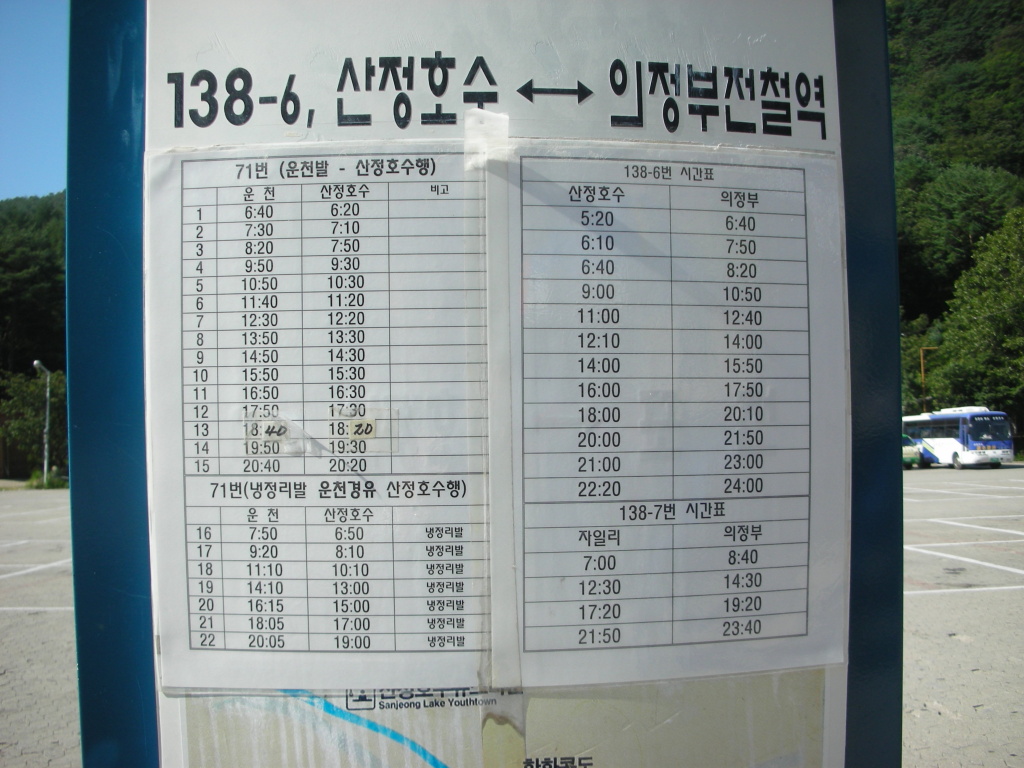 138-6, 산정호수 ↔ 의정부전철역
71번 (운천발 - 산정호수행)
운 전 산정호수 비고
1 6:40 6:20
2 7:30 7:10
3 8:20 7:50
4 9:50 9:30
5 10:50 10:30
6 11:40 11:20
7 12:30 12:20
8 13:50 13:30
9 14:50 14:30
10 15:50 15:30
11 16:50 16:30
12 17:50 17:30
13 18:40 18:20
14 19:50 19:30
15 20:40 20:20
71번(냉정리발 운천경유 산정호수행)
운 전 산정호수
16 7:50 6:50 냉정리발
17 9:20 8:10 냉정리발
18 11:10 10:10 냉정리발
19 14:10 13:00 냉정리발
20 16:15 15:00 냉정리발
21 18:05 17:00 냉정리발
22 20:05 19:00 냉정리발
138-6번 시간표
산정호수 의정부
5:20 6:40
6:10 7:50
6:40 8:20
9:00 10:50
11:00 12:40
12:10 14:00
14:00 15:50
16:00 17:50
18:00 20:10
20:00 21:50
21:00 23:00
22:20 24:00
138-7번 시간표
자일리 의정부
7:00 8:40
12:30 14:30
17:20 19:20
21:50 23:40
Sanjeong Lake Youthtown